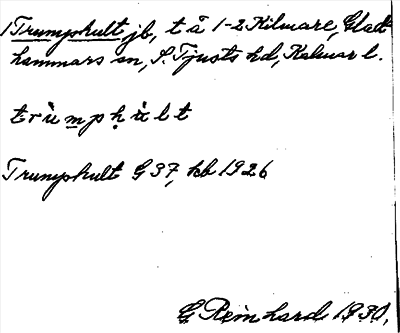 1 Trumphult jb, t å 1-2 Kilmare, Glad-
hammars sn, S. Tjusts hd, Kalmar l.
trùmpḥùlt
Trumphult G 37, kb 1926
G Reinhard 1930.